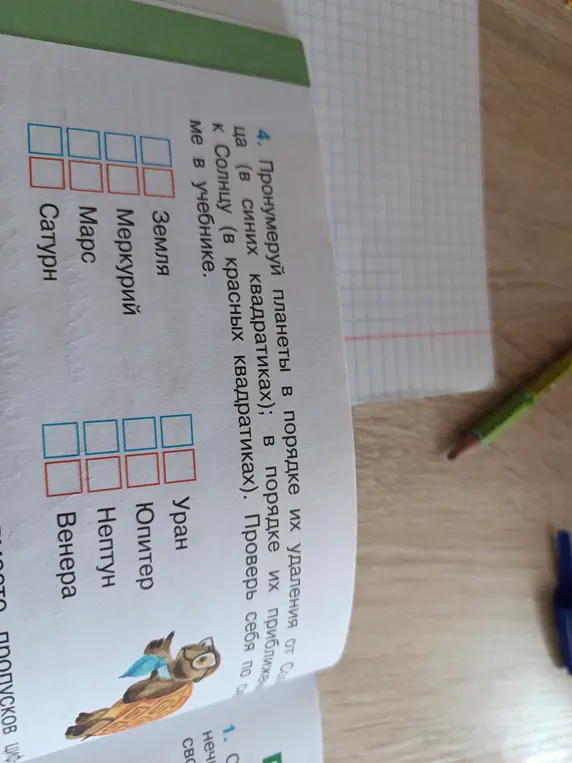 4. Пронумеруй планеты в порядке их удаления от
ца (в синих квадратиках); в порядке их
к Солнцу (в красных квадратиках). Проверь себя по
ме в учебнике.
Земля
Меркурий
Марс
Сатурн
Уран
Юпитер
Нептун
Венера
пропусков
1.